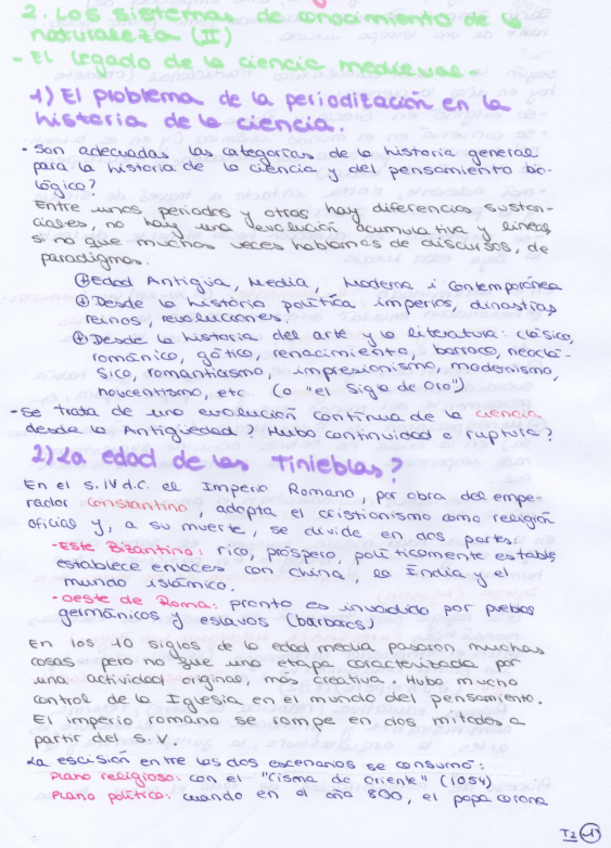 2. Los sistemas de conocimiento de la
naturaleza (II)
- El legado de la ciencia medieval -
1) El problema de la periodización en la
historia de la ciencia.
- Son adecuadas las categorías de la historia general
para la historia de la ciencia y del pensamiento bio-
lógico?
Entre unos periodos y otros hay diferencias sustan-
ciales no hay una evolución acumulativa y lineal
si no que muchas veces hablamos de discursos, de
paradigmas.
Edad Antigüa, Media, Moderna i Contemporánea
Desde la historia política: imperios dinastías
reinos, revoluciones.
Desde la historia del arte y la literatura: clásico,
románico, gótico, renacimiento, barroco, neoclá-
sico, romantiasmo, impresionismo, modernismo,
noucentismo, etc. (o "el siglo de Oro")
- Se trata de una evolución continua de la ciencia
desde la Antigüedad? Hubo continuidad o ruptura?
2) La edad de las Tinieblas?
En el s. IV d.C. el Imperio Romano, por obra del empe-
rador Constantino, adopta el cristionismo como religión
oficial y, a su muerte, se divide en dos partes:
- Este Bizantino: rico, próspero, políticamente estable,
establece enlaces con China, la India y el
mundo islámico.
- Oeste de Roma: pronto es invadido por pueblos
germánicos y eslavos (bárbacs)
En los 10 siglos de la edad media pasaron muchas
cosas pero no fue una etapa caracterizada por
una actividad original, más creativa. Hubo mucho
control de la Iglesia en el mundo del pensamiento.
El imperio romano se rompe en dos mitades a
partir del s. V.
La escisión entre los dos escenarios se consumó:
Plano religioso: con el "Cisma de Oriente" (1054)
Plano político: cuando en el año 800, el papa corona
T2 -1